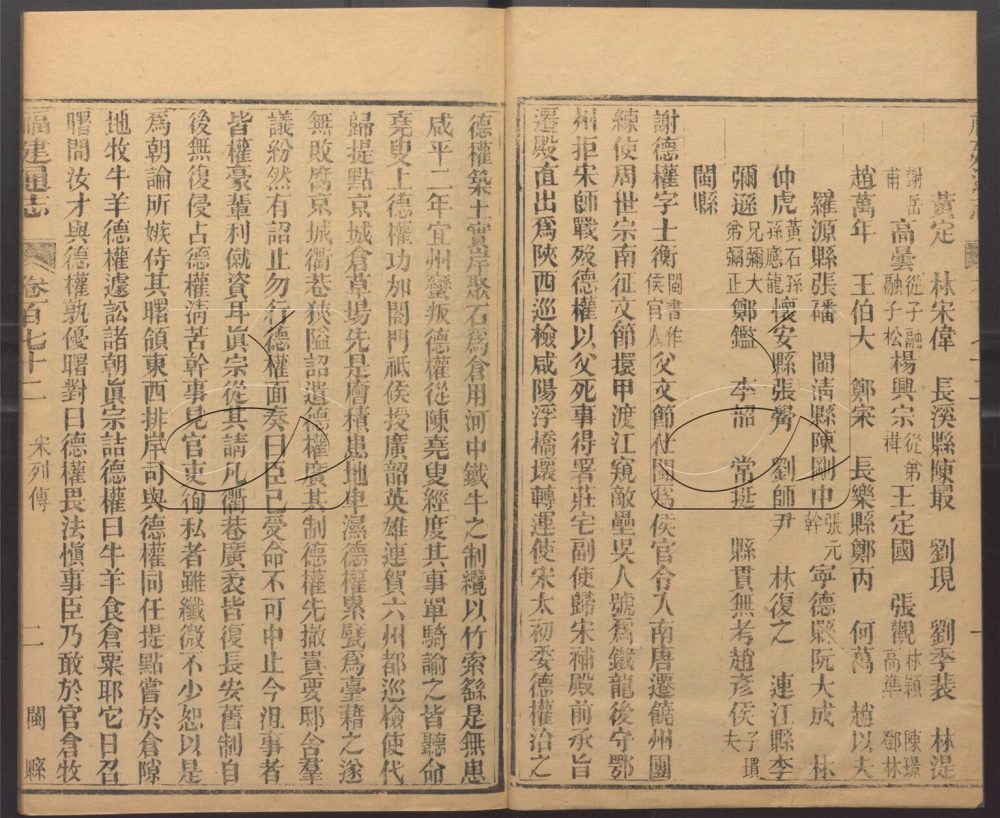 黃定　林宋偉　長溪縣陳最　劉現　劉季裴　林湜
謝岳甫　高曇從子融融子松　楊興宗從弟楫　王定國　張觀林潁高準　陳璟鄧林
趙萬年　王伯大　鄭宋　長樂縣鄭丙　何萬　趙以夫
羅源縣張磻　閩清縣陳剛中張元幹　寧德縣阮大成　林
仲虎黃石孫孫應龍　懷安縣張觷　劉師尹　林復之　連江縣李
彌遜兄彌大弟彌正　鄭鑑　李韶　常挺　縣貫無考趙彥侯子瓆夫
閩縣
謝德權字士衡閩書作侯官人父文節仕閩爲侯官令入南唐遷饒州團
練使周世宗南征文節擐甲渡江窺敵壘吳人號爲鐵龍後守鄂
州拒宋師戰歿德權以父死事得署莊宅副使歸宋補殿前承旨
遷殿直出爲陝西巡檢咸陽浮橋壞轉運使宋太初委德權治之
德權築土實岸聚石爲倉用河中鐵牛之制纜以竹索繇是無患
咸平二年宜州蠻叛德權從陳堯叟經度其事單騎諭之皆聽命
堯叟上德權功加閤門祗侯授廣韶英雄連賀六州都巡檢使代
歸提點京城倉草場先是廥積患地卑濕德權累甓爲臺藉之遂
無敗腐京城衢巷狹隘詔遣德權廣其制德權先撤貴要邸舍羣
議紛然有詔止勿行德權面奏曰臣已受命不可中止今沮事者
皆權豪輩利僦資耳眞宗從其請凡衢巷廣袤皆復長安舊制自
後無復侵占德權淸苦幹事見官吏徇私者雖纖微不少恕以是
爲朝論所嫉侍其曙領東西排岸司與德權同任提點嘗於倉隙
地牧牛羊德權遽訟諸朝眞宗詰德權曰牛羊食倉粟耶它日召
曙問汝才與德權孰優曙對曰德權畏法愼事臣乃敢於官倉牧
福建通志　卷百七十二　宋列傳　二　閩縣